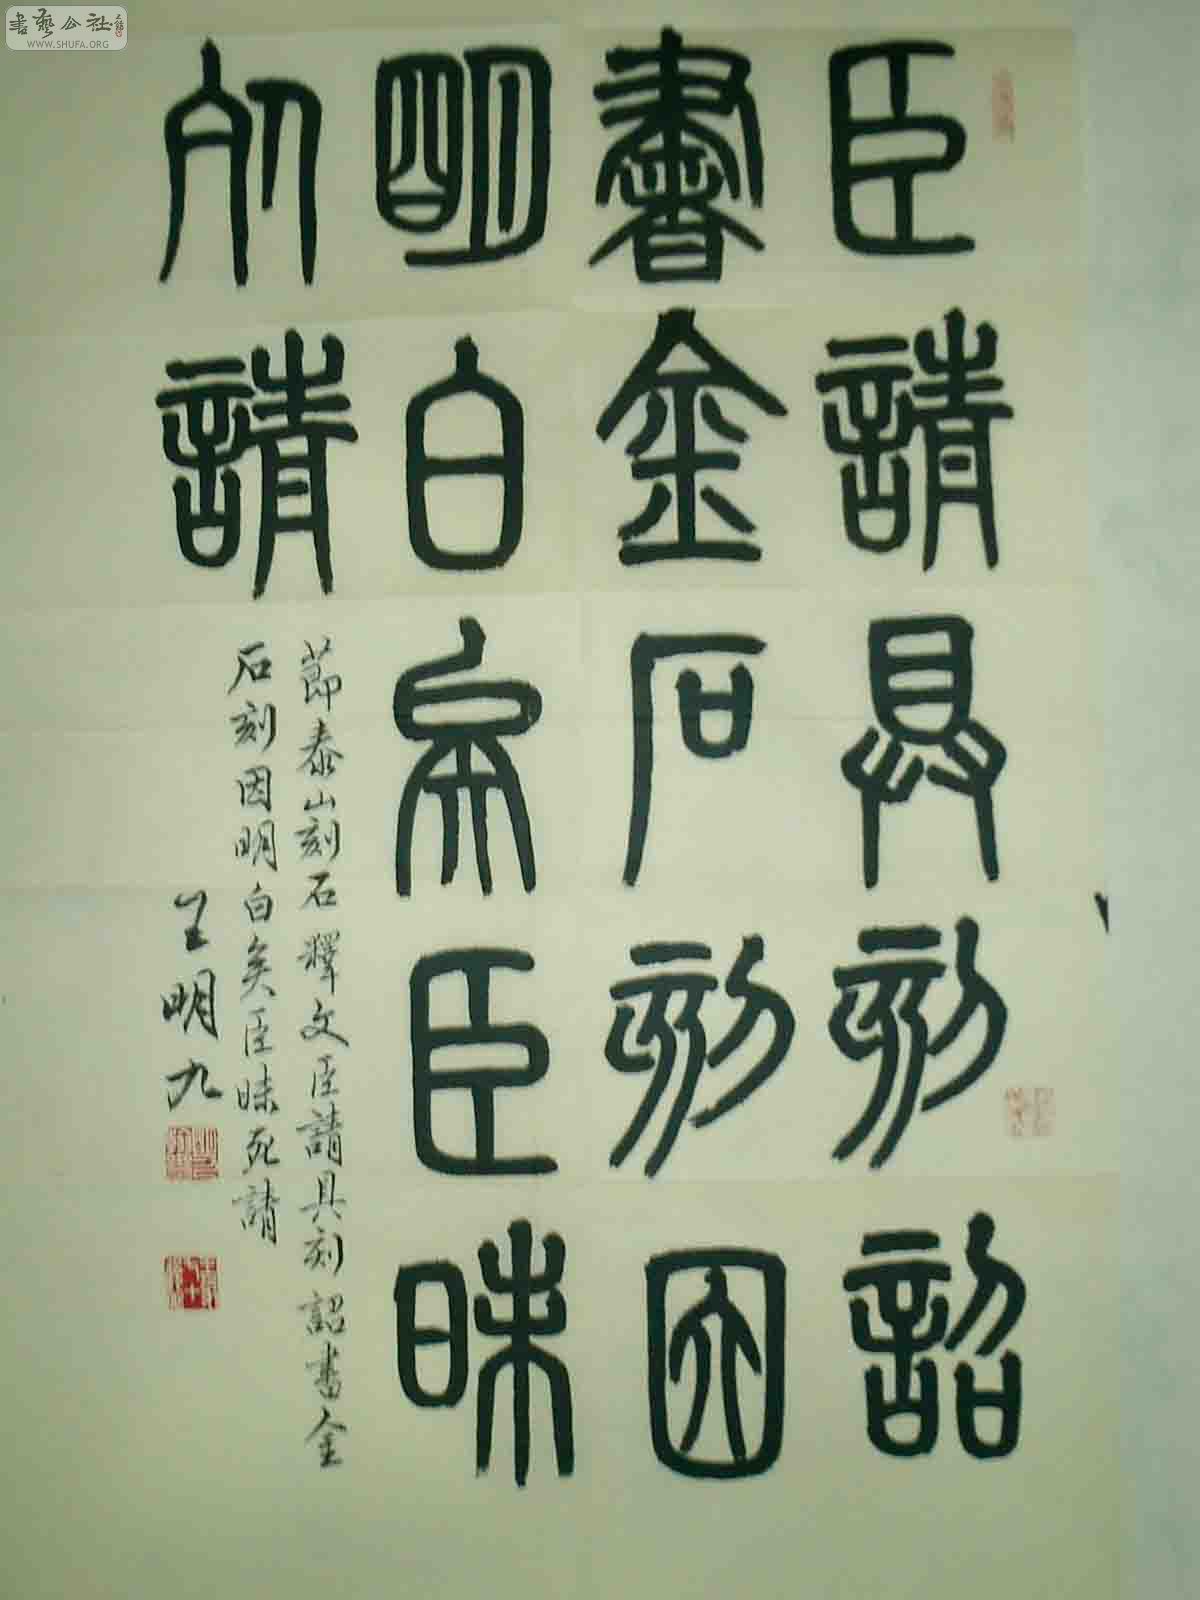 臣請具刻詔
書金石刻因
明白矣臣昧
死請
節泰山刻石釋文臣請具刻詔書金
石刻因明白矣臣昧死請
王明九
書藝公社
WWW.SHUFA.ORG